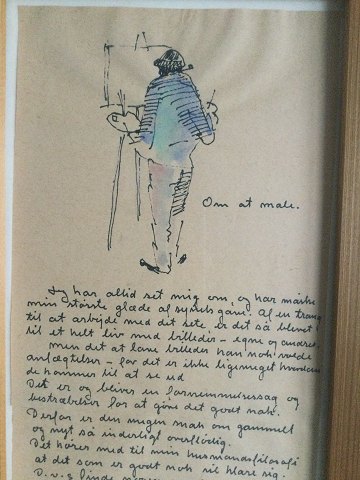 Om at male.
Jeg har altid set mig om, og har måske
min største glæde af synets gave. Af en trang
til at arbejde med det sete, er det så blevet
til et helt liv med billeder – egne og andres,
men det at lave billeder kan nok volde
anfægtelser – for det er ikke ligemeget hvordan
de kommer til at se ud
Det er og bliver en fornemmelsessag og
bestræbelser for at gøre det godt nok.
Derfor er den megen snak om gammelt
og nyt så inderligt overflødig.
Det hører med til min husmandsfilosofi
at det som er godt nok vil klare sig.
D.v.s finde